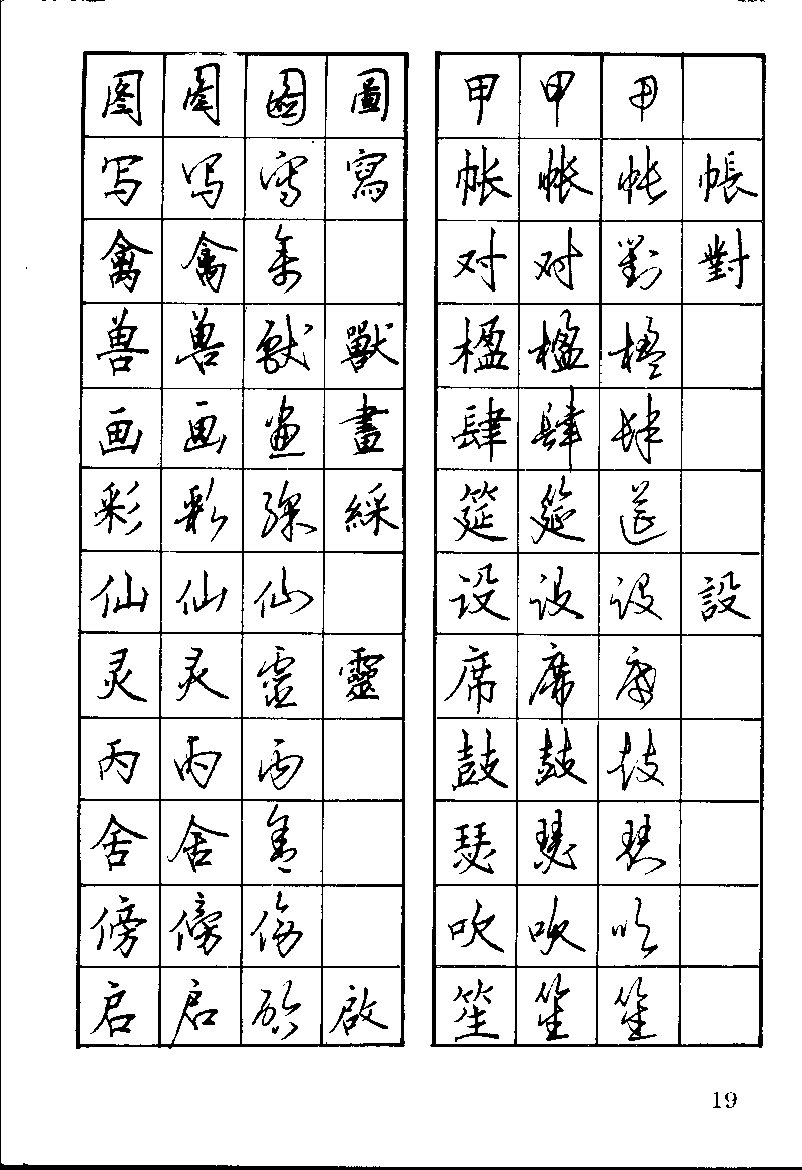 图 图 圖 圖
写 写 寫 寫
禽 禽 禽
兽 兽 獸 獸
画 画 畫 畫
彩 彩 綵 綵
仙 仙 仙
灵 灵 靈 靈
丙 丙 丙
舍 舍 舍
傍 傍 傍
启 启 啟 啟
甲 甲 甲
帐 帐 帐 帳
对 对 對 對
楹 楹 楹
肆 肆 肆
筵 筵 筵
设 设 设 設
席 席 席
鼓 鼓 鼓
瑟 瑟 瑟
吹 吹 吹
笙 笙 笙
19